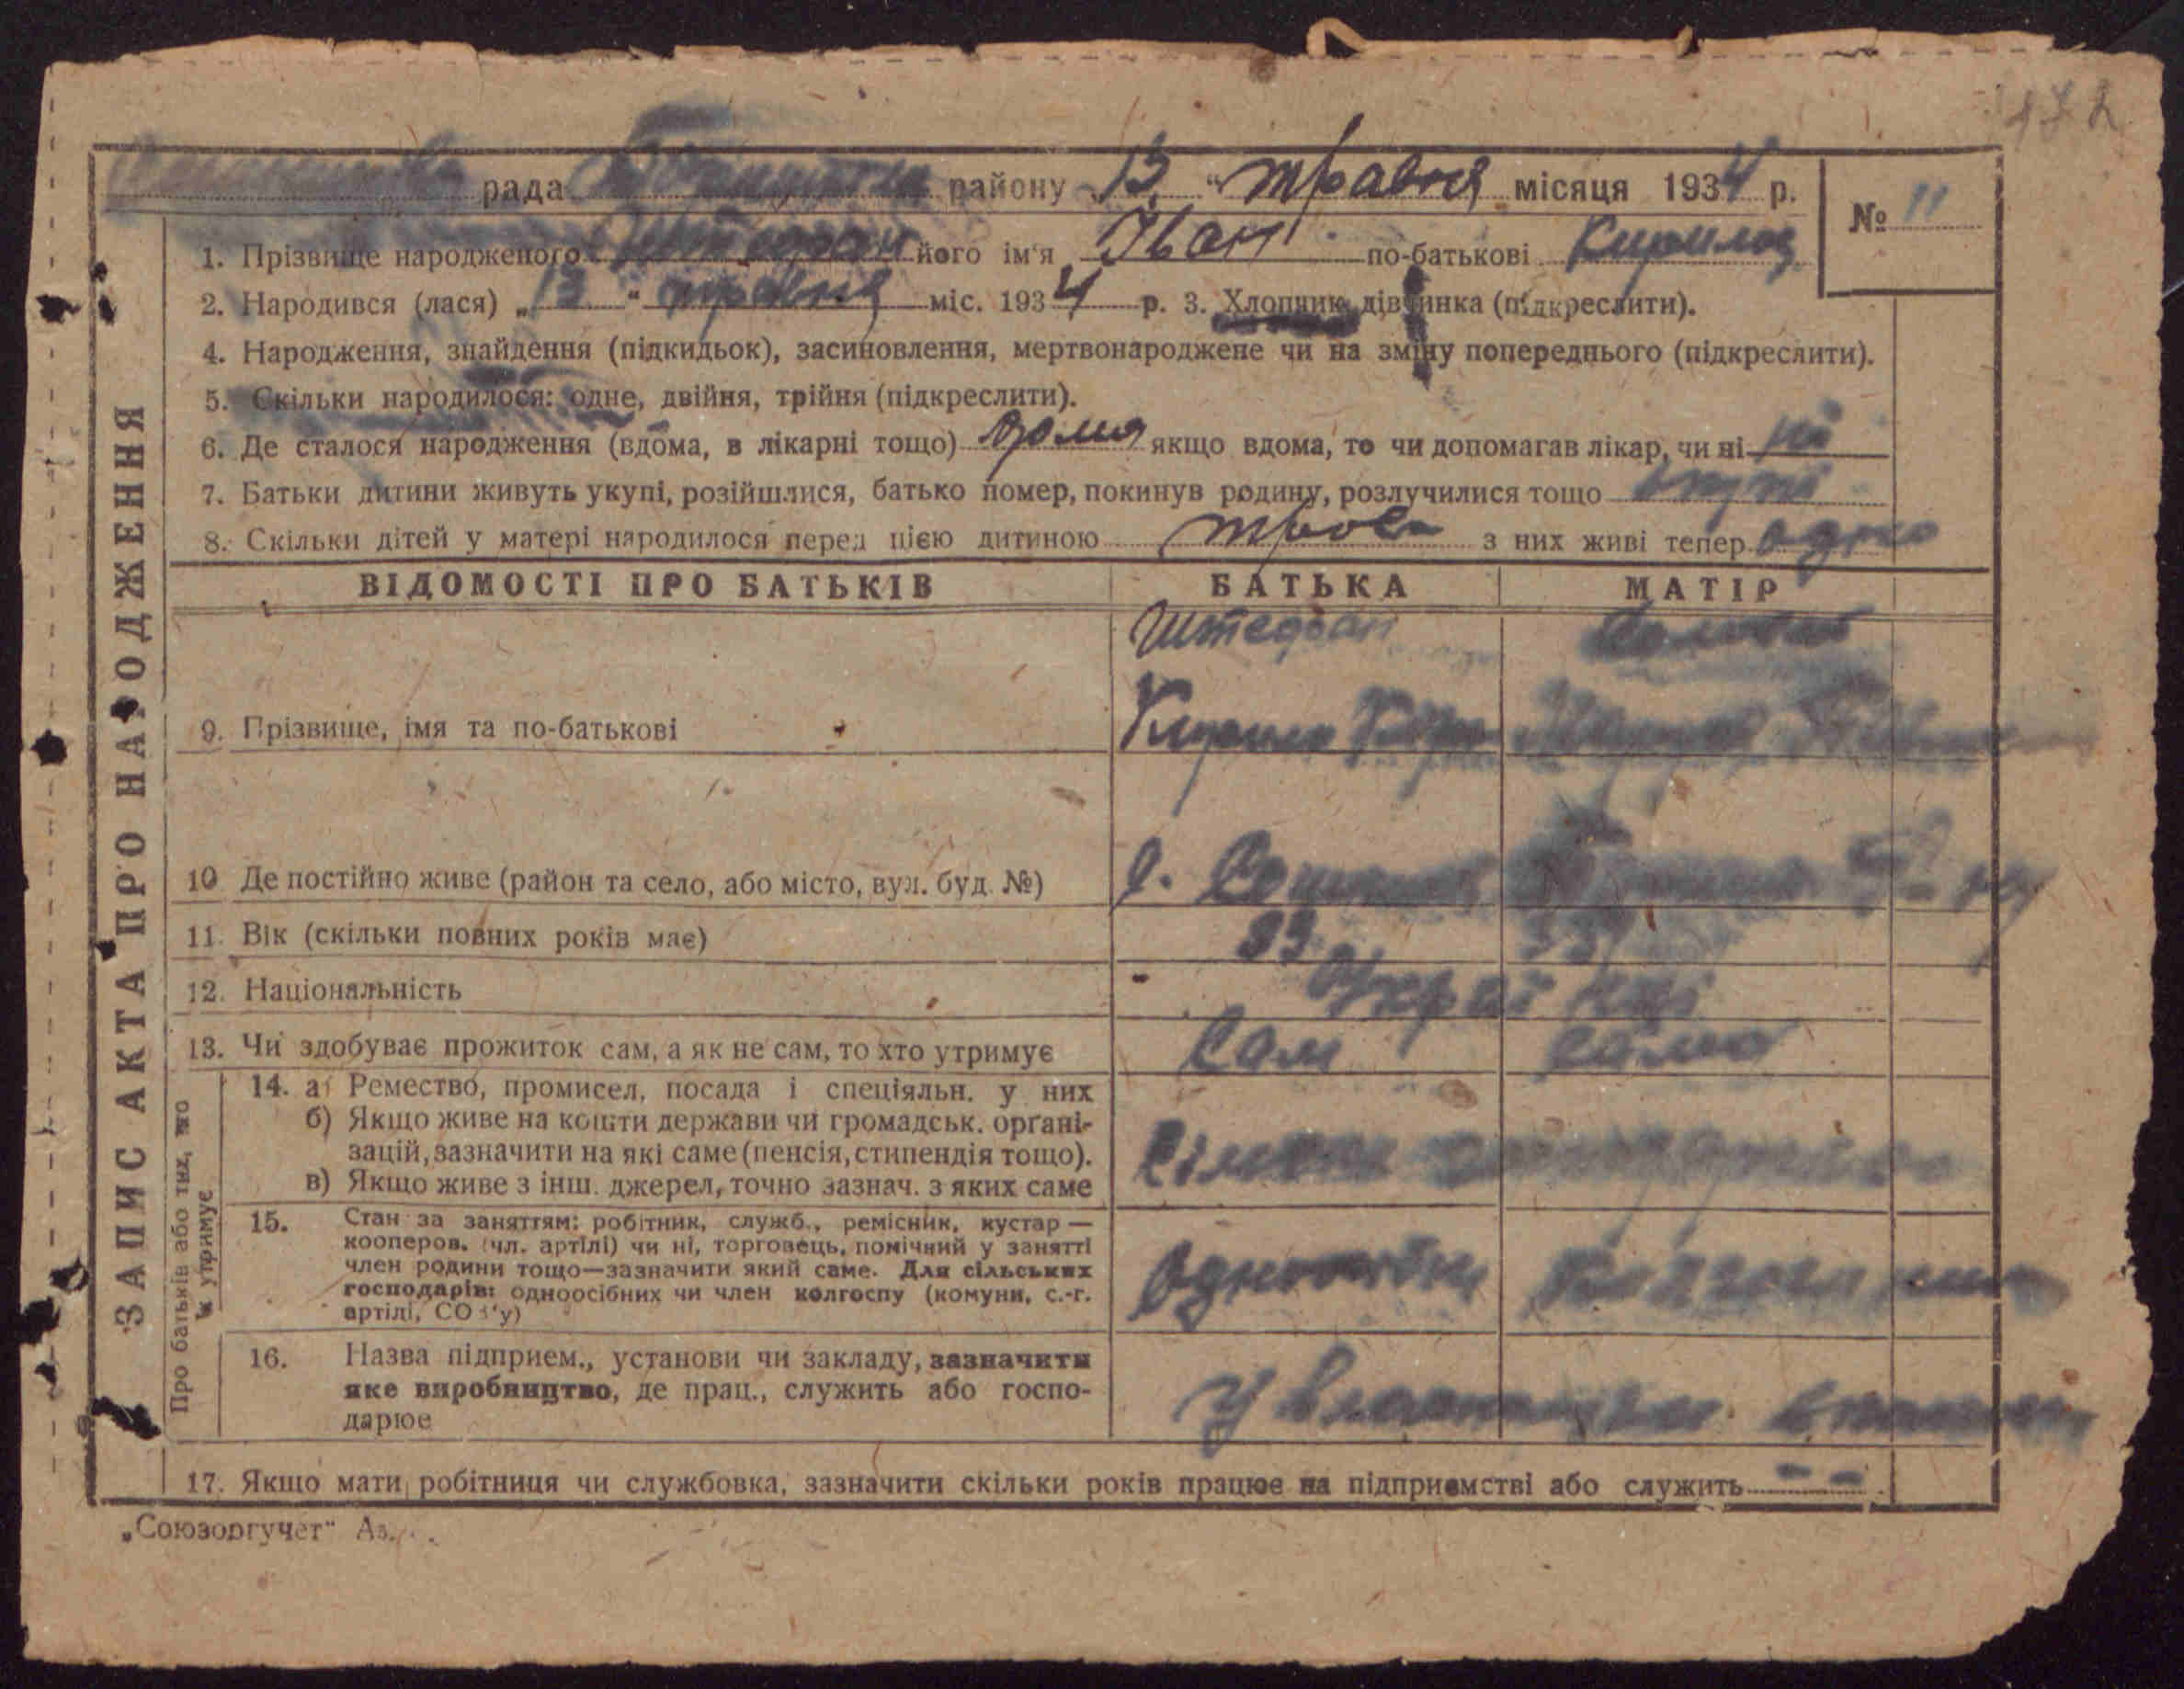 172
рада району 13 " травня місяця 1934 р.
№ 11
1. Прізвище народженого Штефан його ім'я Іван по-батькові Кирилов
2. Народився (лася) „13 " травня міс. 1934 р. 3. Хлопчик, дівчинка (підкреслити).
4. Народження, знайдення (підкидьок), засиновлення, мертвонароджене чи на зміну попереднього (підкреслити).
5. Скільки народилося: одне, двійня, трійня (підкреслити).
6. Де сталося народження (вдома, в лікарні тощо) дома якщо вдома, то чи допомагав лікар, чи ні ні
7. Батьки дитини живуть укупі, розійшлися, батько помер, покинув родину, розлучилися тощо вкупі
8. Скільки дітей у матері народилося перед цією дитиною троє з них живі тепер одно
ЗАПИС АКТА ПРО НАРОДЖЕННЯ
ВІДОМОСТІ ПРО БАТЬКІВ БАТЬКА МАТІР
Штефан
9. Прізвище, імя та по-батькові Кирило
10 Де постійно живе (район та село, або місто, вул. буд. №) с.
11. Вік (скільки повних років має) 33 33
12. Національність Украї нці
13. Чи здобуває прожиток сам, а як не сам, то хто утримує Сам сама
Про батьків або тих, що їх утримує
14. а) Ремество, промисел, посада і спеціяльн. у них
б) Якщо живе на кошти держави чи громадськ. орґані-
зацій, зазначити на які саме (пенсія, стипендія тощо).
в) Якщо живе з інш. джерел, точно зазнач. з яких саме
15. Стан за заняттям: робітник, служб., ремісник, кустар —
кооперов. (чл. артілі) чи ні, торговець, помічний у занятті
член родини тощо—зазначити який саме. Для сільських
господарів: одноосібних чи член колгоспу (комуни, с.-г.
артілі, СОЗ'у)
16. Назва підприєм., установи чи закладу, зазначити
яке виробництво, де прац., служить або госпо-
дарює
У власному
17. Якщо мати робітниця чи службовка, зазначити скільки років працює на підприємстві або служить — —
„Союзоргучет"